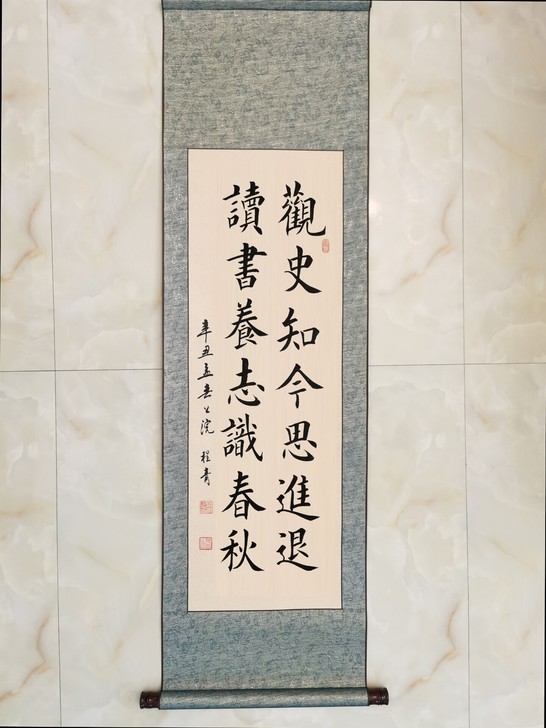 觀史知今思進退
讀書養志識春秋
辛丑孟春 程青